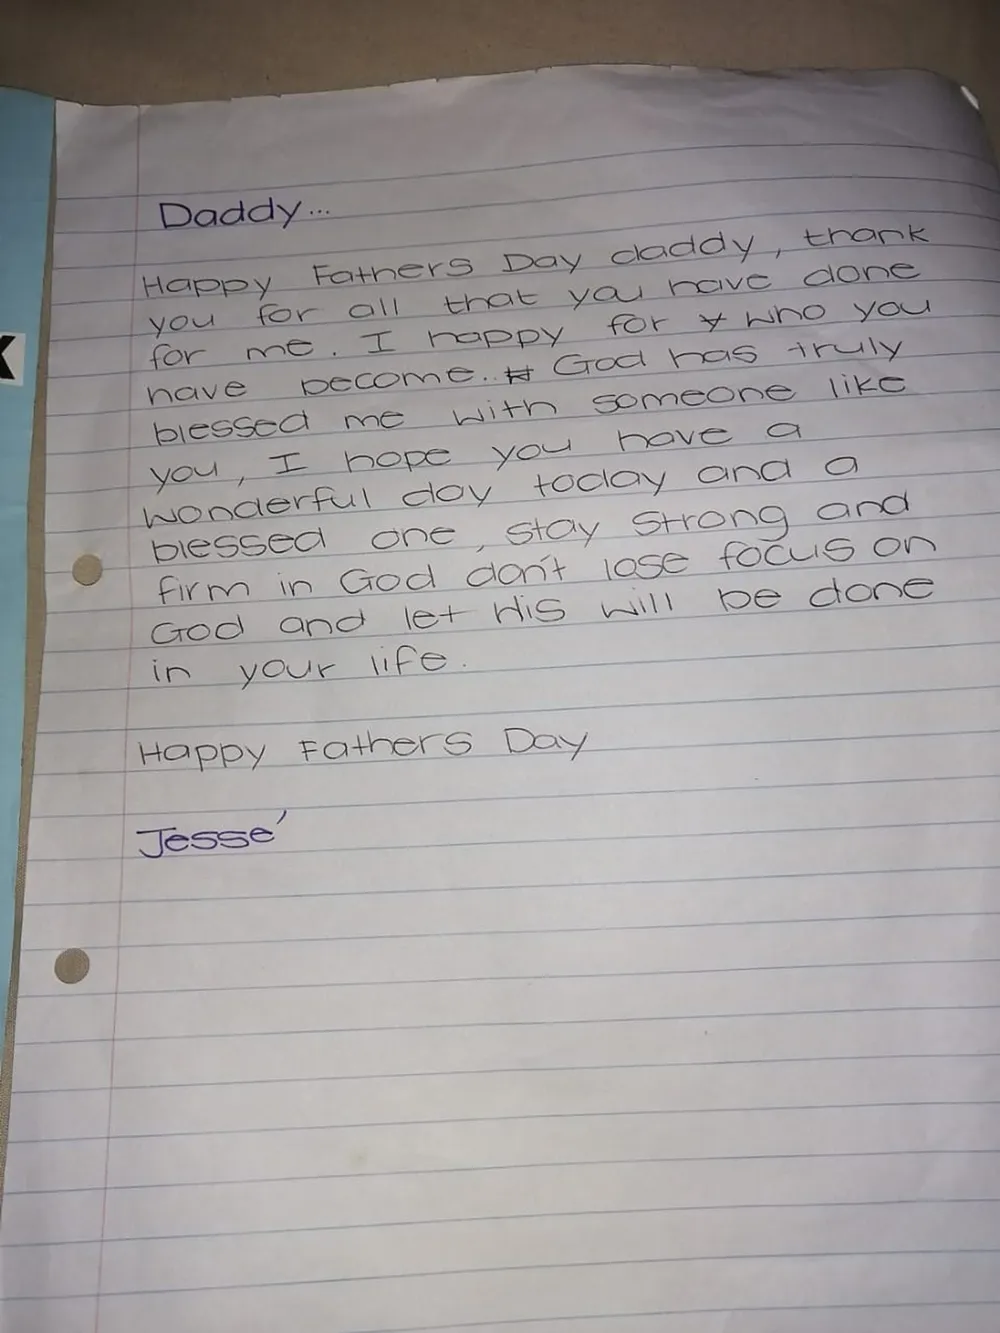 Daddy...
Happy Fathers Day daddy, thank
you for all that you have done
for me. I happy for who you
have become. God has truly
blessed me with someone like
you, I hope you have a
wonderful day today and a
blessed one, stay strong and
firm in God don't lose focus on
God and let His will be done
in your life.
Happy Fathers Day
Jesse'